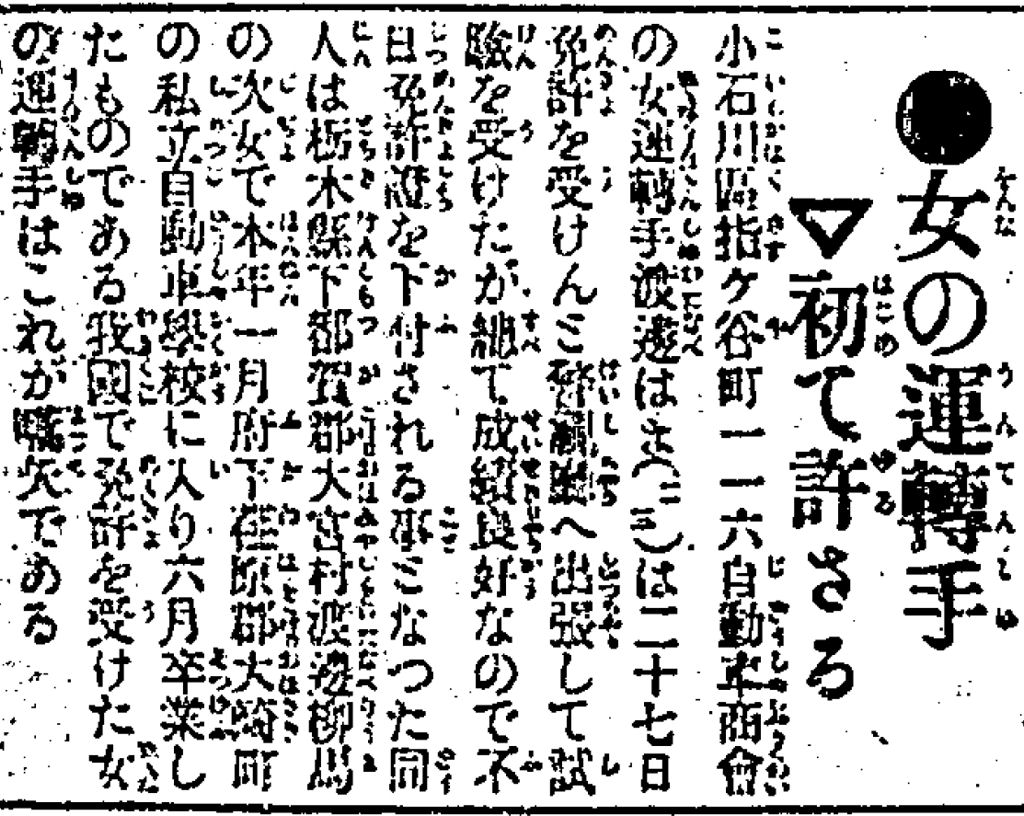 ●女の運轉手
▽初て許さる
小石川區指ケ谷町一一六自動車商會
の女運轉手渡邊はま(二三)は二十七日
免許を受けんと警視廳へ出張して試
驗を受けたが總て成績良好なので不
日免許證を下付される事となつた同
人は栃木縣下都賀郡大宮村渡邊柳馬
の次女で本年一月府下荏原郡大崎町
の私立自動車學校に入り六月卒業し
たものである我國で免許を受けた女
の運轉手はこれが嚆矢である